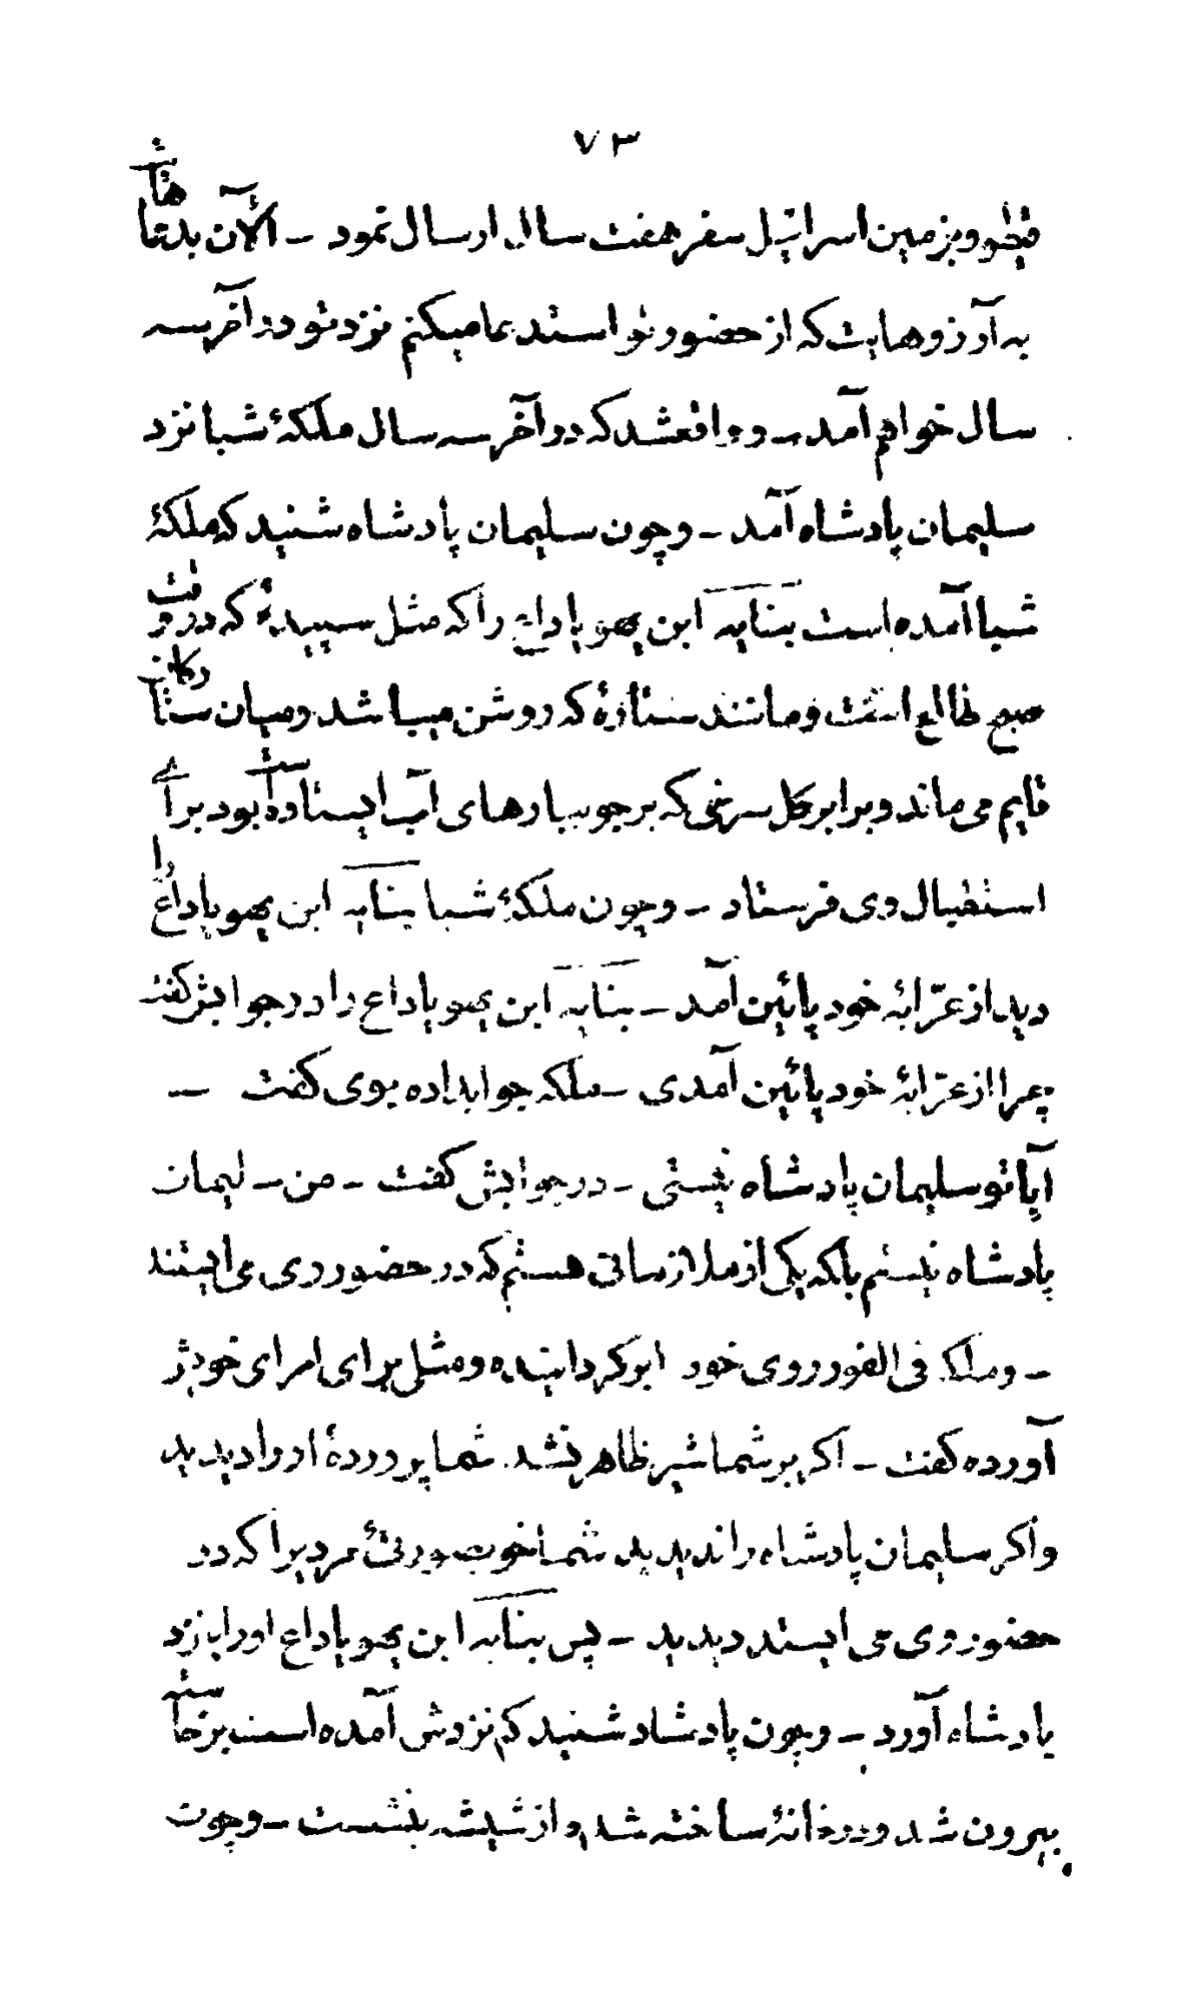 ۷۳
قیطور و بزمین اسرائیل سفر هفت سال ارسال نمود - الآن بدعاهاش
به آرزوهایت که از حضور تو استدعا میکنم نزد تو در آخر سه
سال خواهم آمد - و واقعشد که در آخر سه سال ملکهٔ شبا نزد
سلیمان پادشاه آمد - و چون سلیمان پادشاه شنید که ملکهٔ
شبا آمده است بنایه ابن یهویاداع را که مثل سپیدهٔ که در وقت
صبح طالع است و مانند ستارهٔ که روشن میباشد و میان ستارگان
قایم می ماند و برابر گل سرخی که بر جویبارهای آب ایستاده است بود برای
استقبال وی فرستاد - و چون ملکهٔ شبا بنایه ابن یهویاداع را
دید از عرّابهٔ خود پائین آمد - بنایه ابن یهویاداع را در جوابش گفت
چرا از عرّابهٔ خود پائین آمدی - ملکه جوابداده بوی گفت -
آیا تو سلیمان پادشاه نیستی - در جوابش گفت - من سلیمان
پادشاه نیستم بلکه یکی از ملازمانی هستم که در حضور وی می ایستند
- و ملکه فی الفور روی خود ابر گردانیده و مثل برای امرای خود بر
آورده گفت - اگر بر شما شیر ظاهر نشد شما پروردهٔ او را دیدید
و اگر سلیمان پادشاه را ندیدید شما خوبصورتیٔ مردیرا که در
حضور وی می ایستد دیدید - پس بنایه ابن یهویاداع او را بنزد
پادشاه آورد - و چون پادشاه شنید که نزدش آمده است برخاسته
بیرون شد و در خانهٔ ساخته شده از شیشه بنشست - و چون